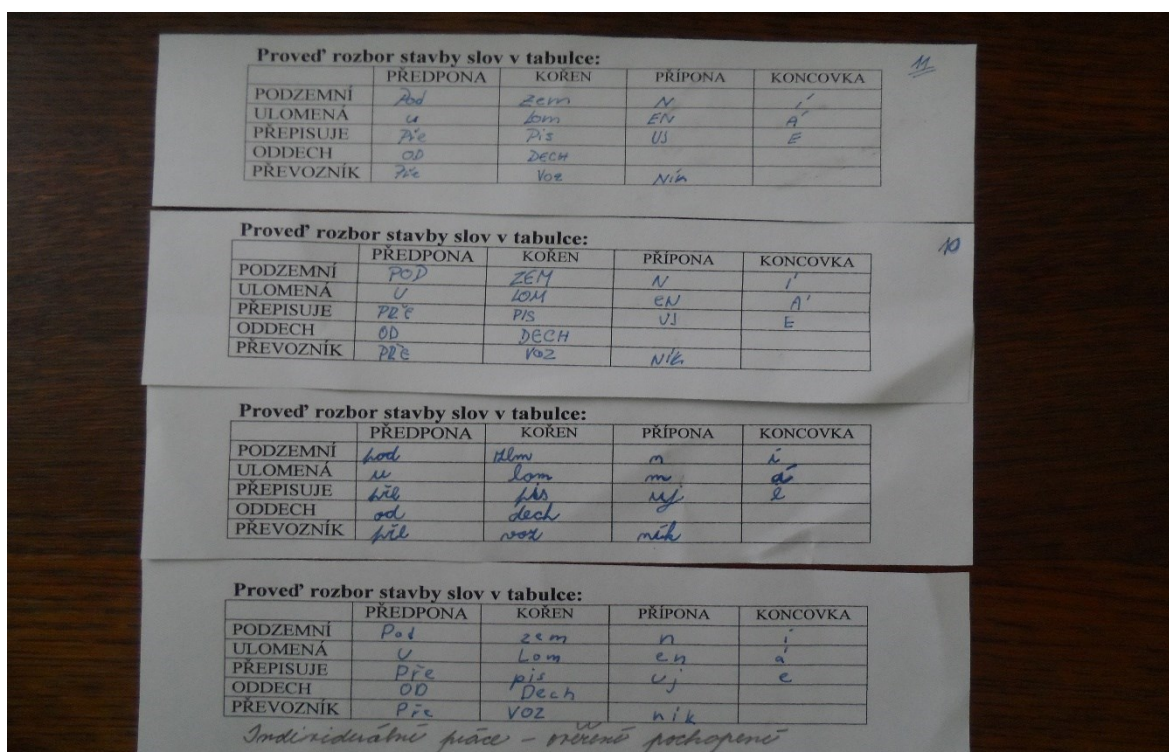 Proveď rozbor stavby slov v tabulce: 11
PŘEDPONA KOŘEN PŘÍPONA KONCOVKA
PODZEMNÍ Pod zem N Í
ULOMENÁ u lom EN Á
PŘEPISUJE Pře Pis UJ E
ODDECH OD DECH
PŘEVOZNÍK Pře Voz Ník
Proveď rozbor stavby slov v tabulce: 10
PŘEDPONA KOŘEN PŘÍPONA KONCOVKA
PODZEMNÍ POD ZEM N Í
ULOMENÁ U LOM eN Á
PŘEPISUJE PŘe PIS UJ E
ODDECH OD DECH
PŘEVOZNÍK PŘe VOZ Ník
Proveď rozbor stavby slov v tabulce:
PŘEDPONA KOŘEN PŘÍPONA KONCOVKA
PODZEMNÍ pod zem n í
ULOMENÁ u lom m á
PŘEPISUJE pře pis uj e
ODDECH od dech
PŘEVOZNÍK pře voz ník
Proveď rozbor stavby slov v tabulce:
PŘEDPONA KOŘEN PŘÍPONA KONCOVKA
PODZEMNÍ Pod zem n í
ULOMENÁ U Lom en á
PŘEPISUJE Pře pis uj e
ODDECH OD Dech
PŘEVOZNÍK Pře VOZ ník
Individuální práce – ověření pochopení